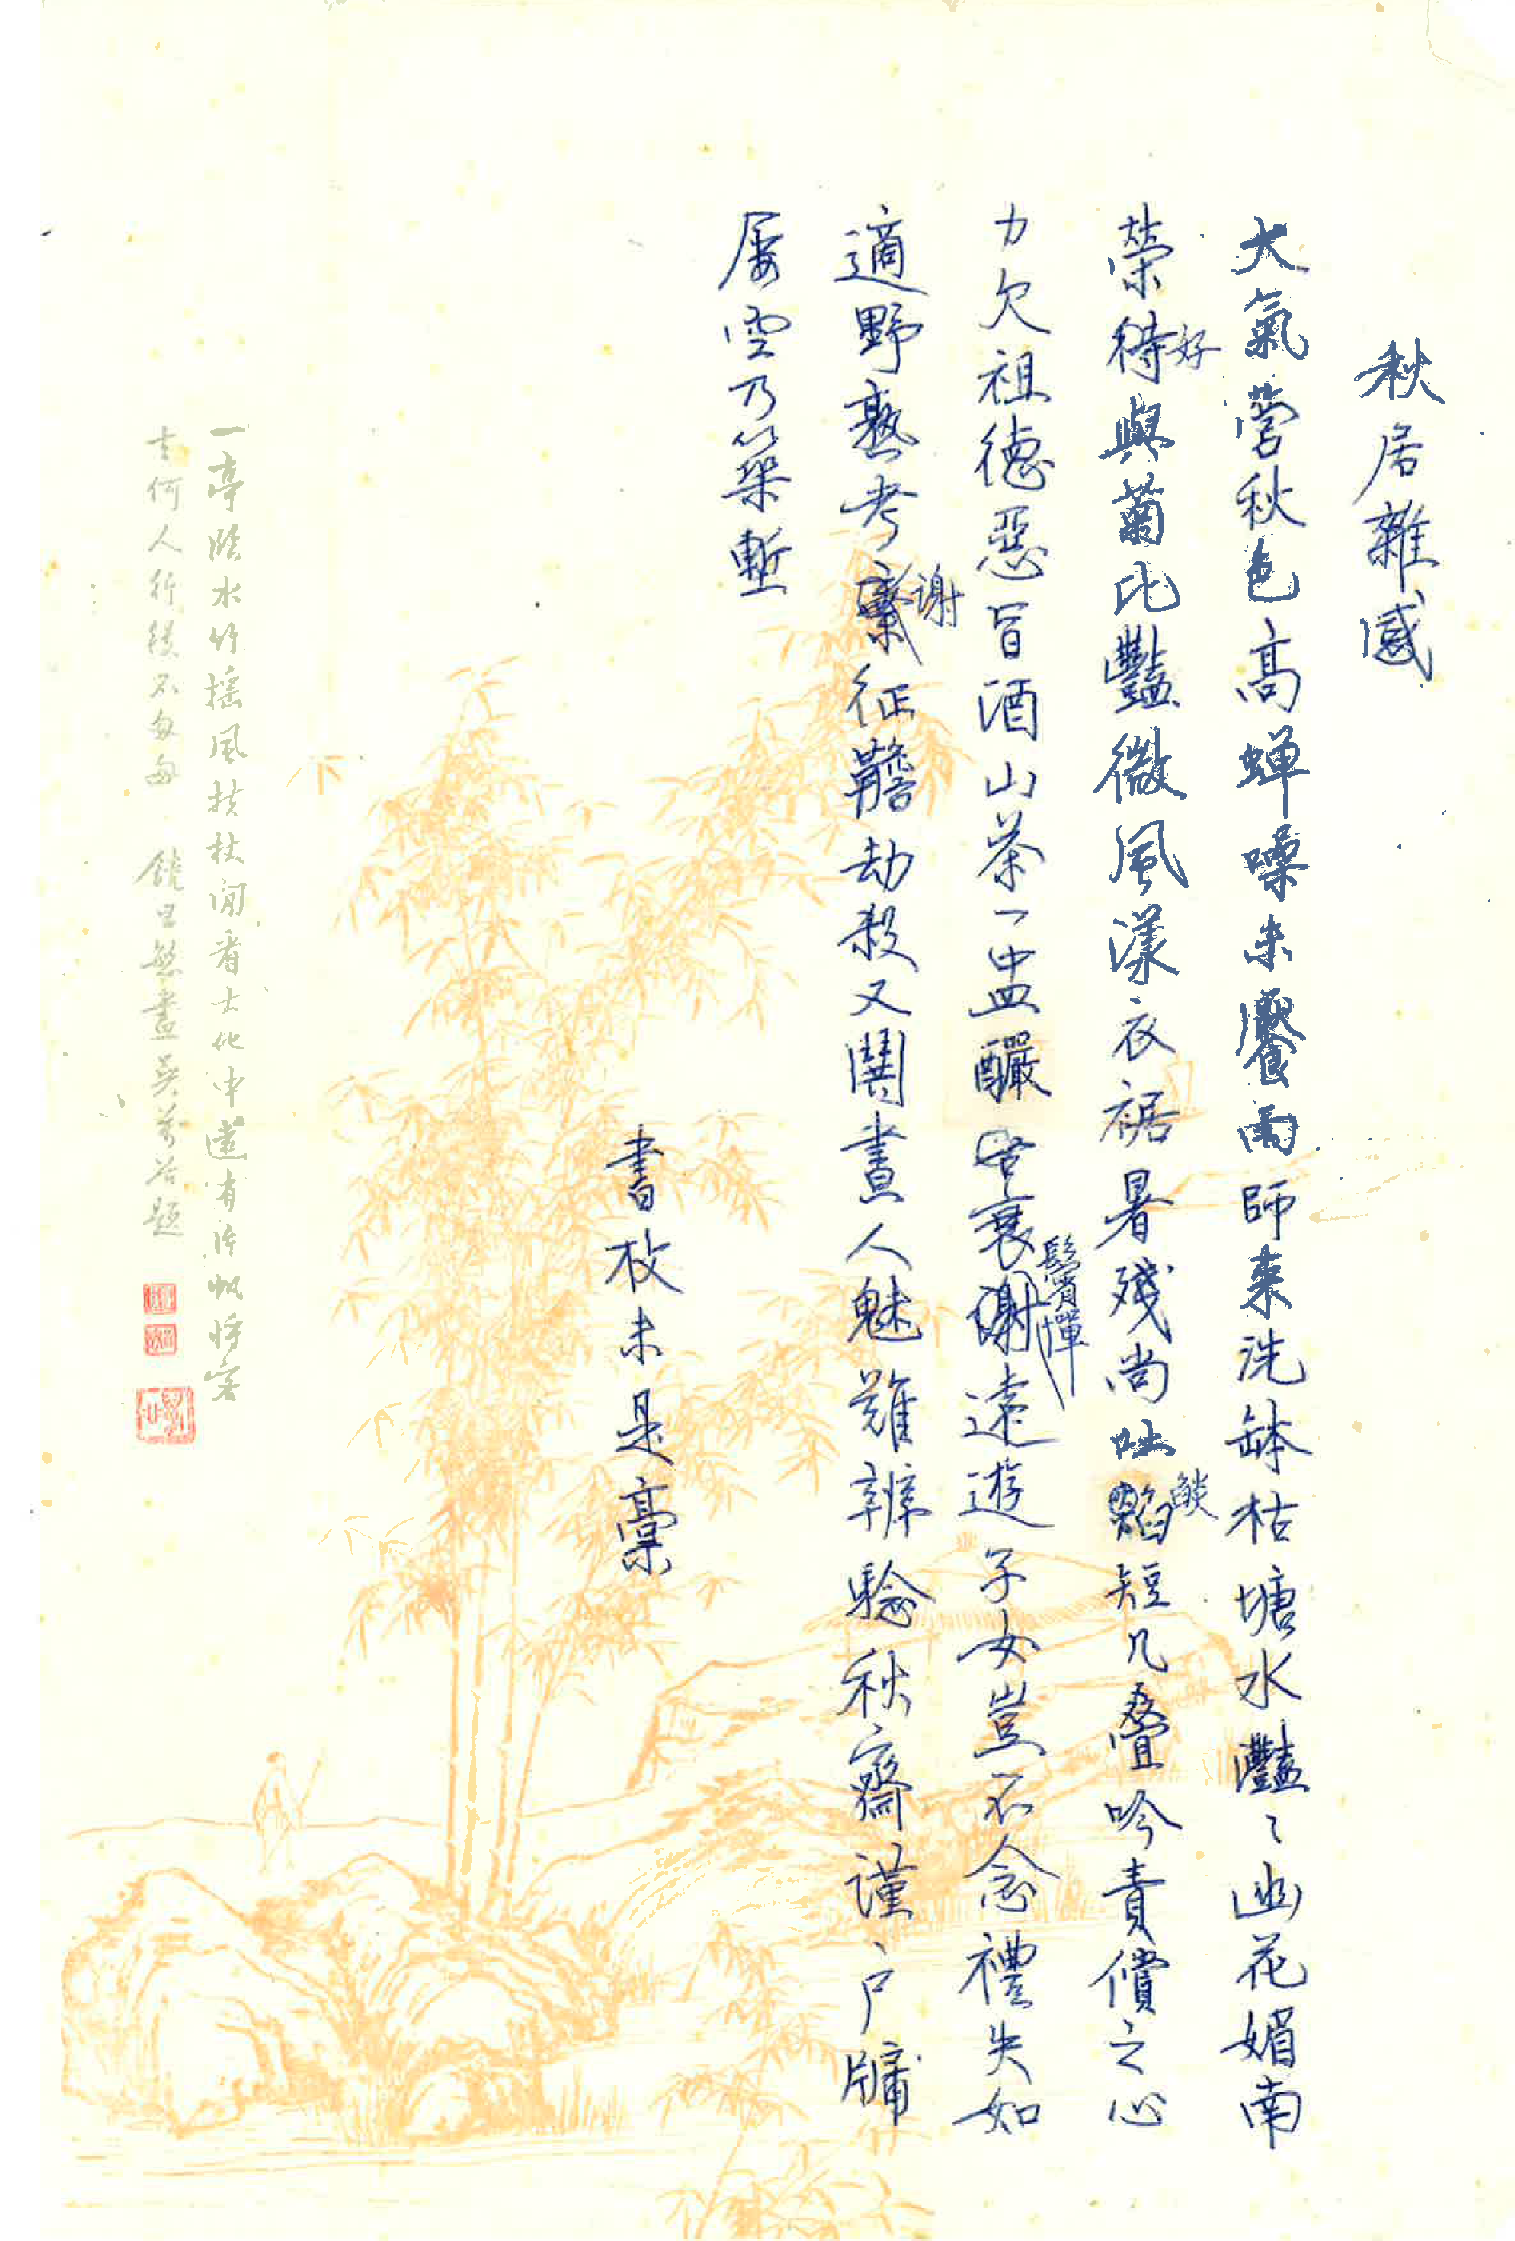 秋居雜感
大氣營秋色高蟬噪未饜雨師來洗缽枯塘水灩〻幽花媚南
榮待與菊比豔微風漾衣裾暑殘尚吐燄短几疊吟責償之心
好
燄
力欠祖德惡旨酒山茶一盅釅世衰謝遠遊子女豈不念禮失如
鬢憚
適野熟考槃征鞶劫殺又鬨晝人魅難辨驗秋齋謹戶牖
谢
屡空乃築塹
書枚未是稾
一亭臨水竹搖風扶杖閒看大化中還有片帆
去何人行役不匆匆